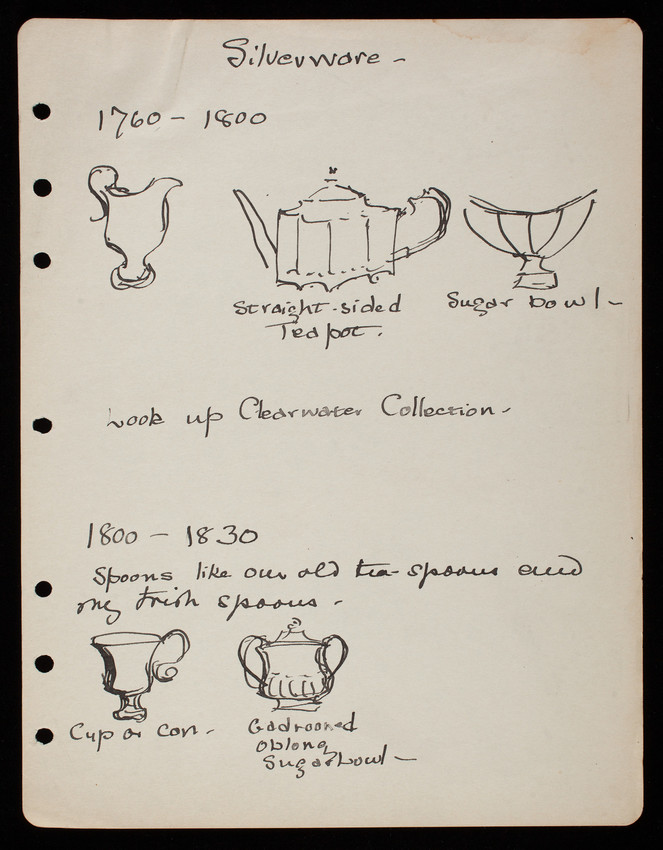 Silverware -
1760 - 1800
Straight-sided
Teapot.
Sugar bowl -
Look up Clearwater Collection -
1800 - 1830
Spoons like our old tea-spoons and
my Irish spoons -
Cup or Can -
Gadrooned
oblong
Sugarbowl -